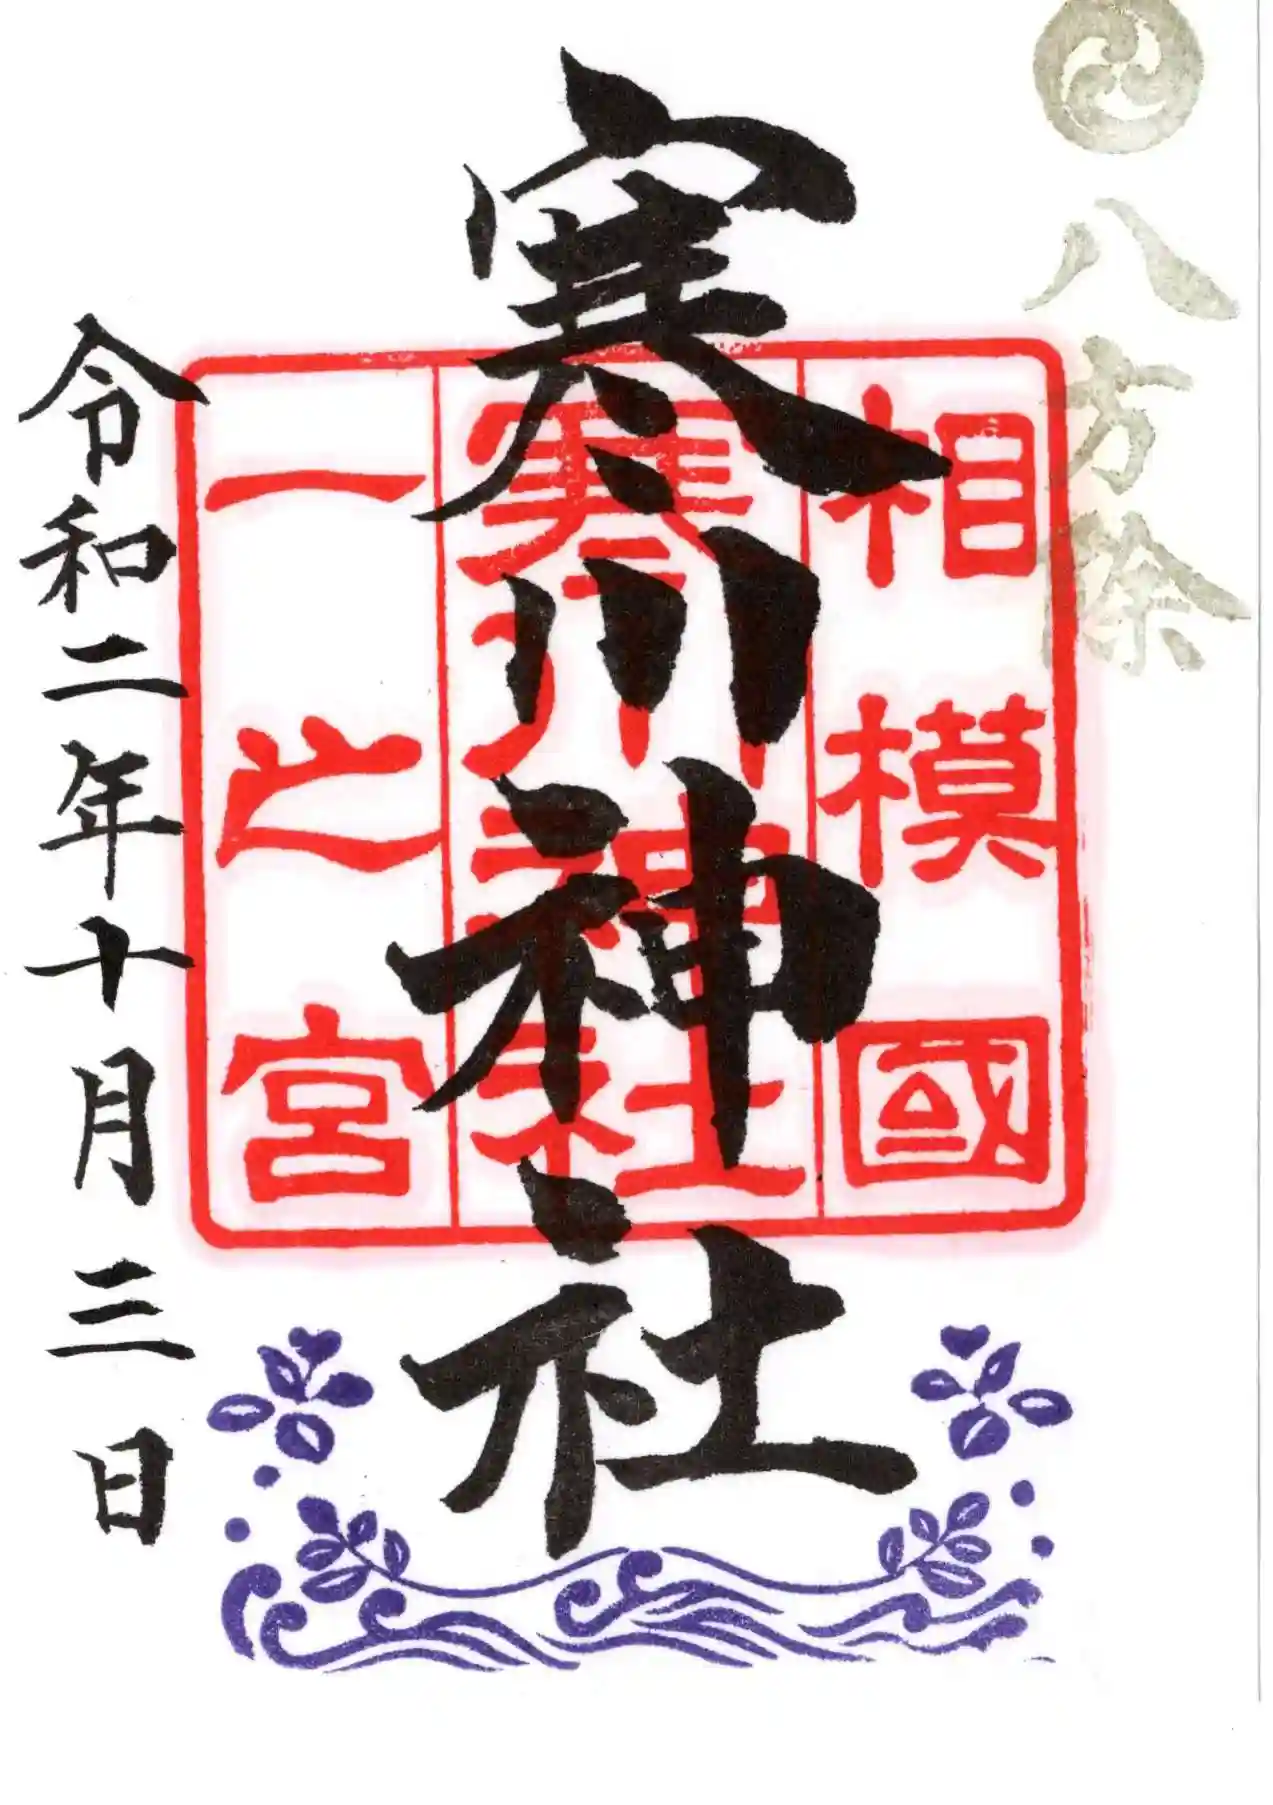 八方除
寒川神社
相模國
寒川神社
一之宮
令和二年十月三日